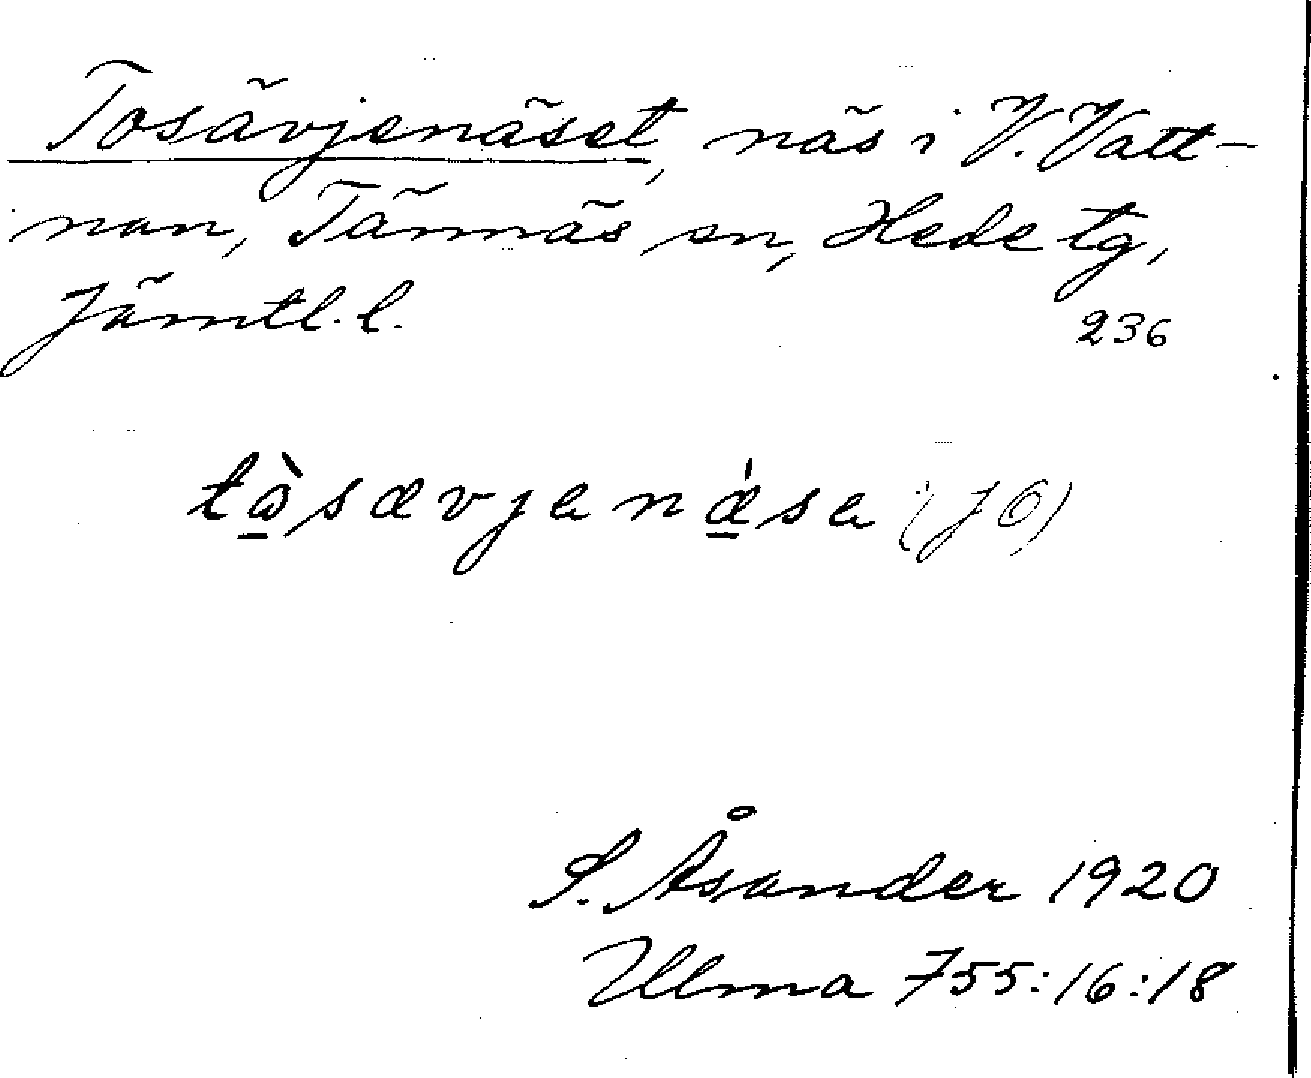 Tosävjenäset, näs i V. Vatt-
nan, Tännäs sn, Hede tg,
Jämtl. l.
236
tòsævjenæ̀se (JÖ)
S. Åsander 1920
Ulma 755:16:18